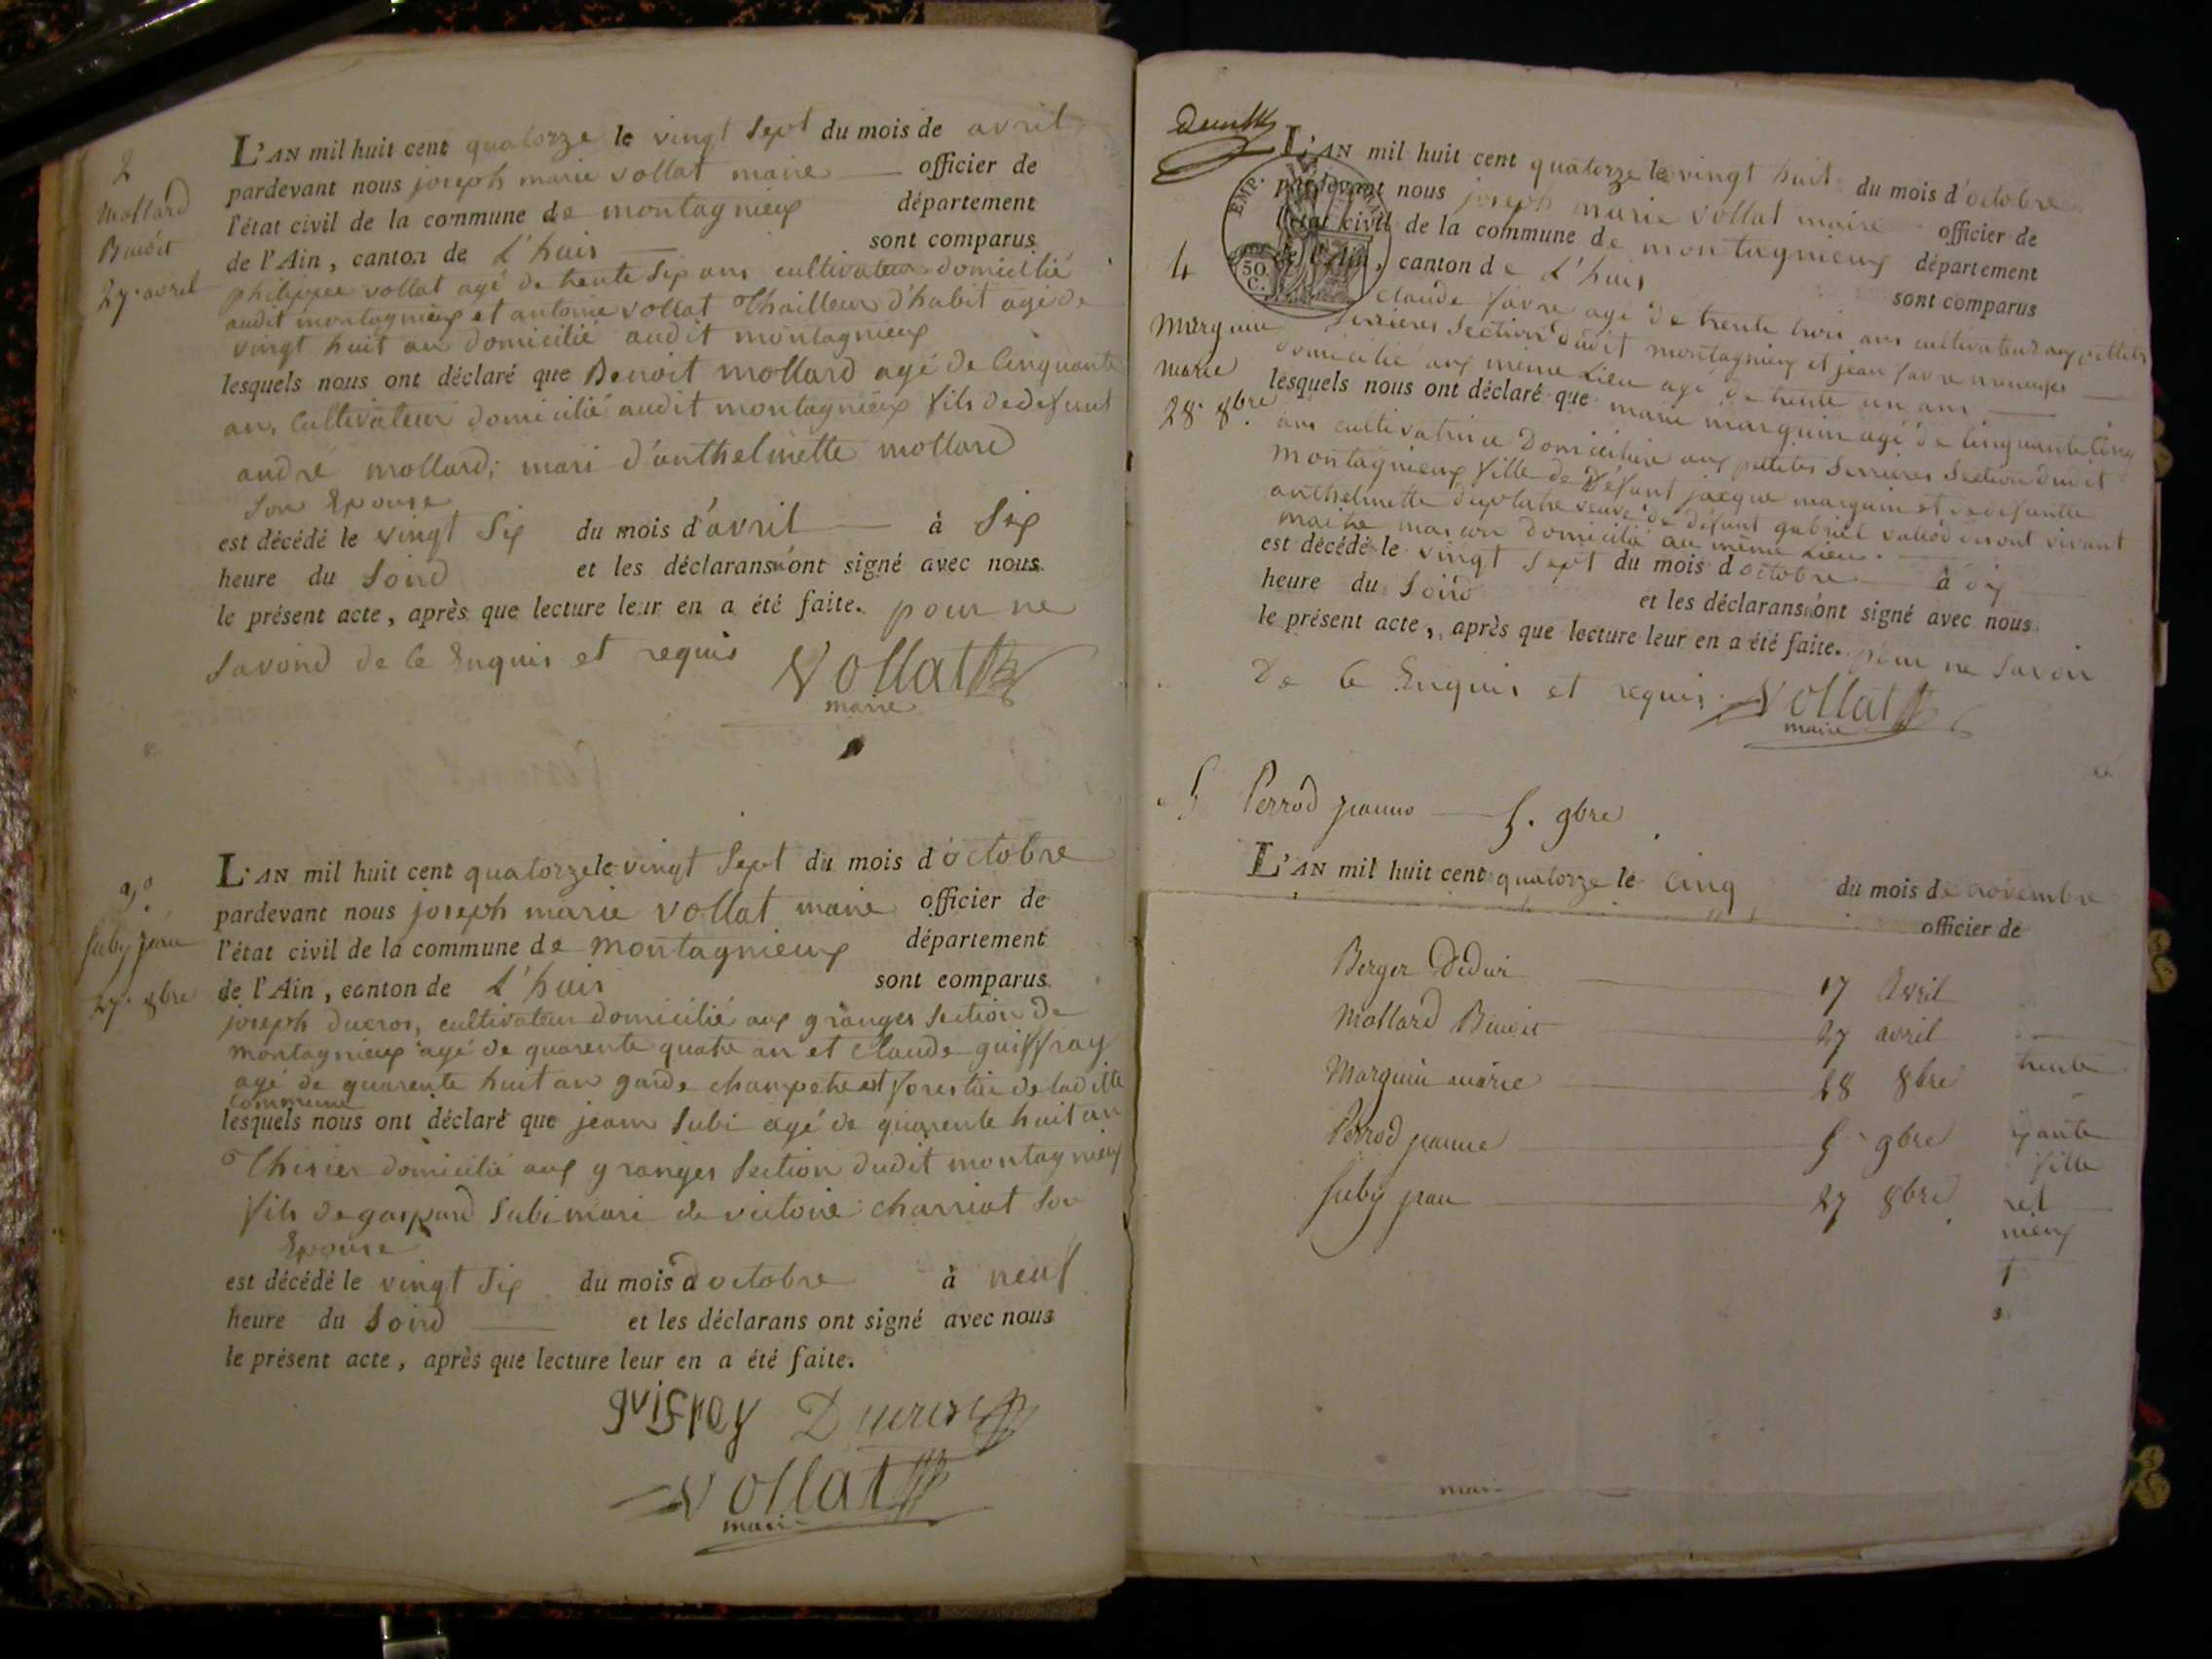 2
Mollard
Benoit
27 avril
L'AN mil huit cent quatorze le vingt sept du mois de avril
pardevant nous joseph marie vollat maire officier de
l'état civil de la commune de montagnieux département
de l'Ain, canton de L'huis sont comparus
philippe vollat agé de trente six ans cultivateur domicilié
audit montagnieux et antoine vollat Thailleur d'habit agé de
vingt huit an domicilié audit montagnieux
lesquels nous ont déclaré que Benoit mollard agé de Cinquante
an, Cultivateur domicilié audit montagnieux fils de defunt
andré mollard; mari d'anthelmette mollard
Son Epouse
est décédé le vingt Six du mois d'avril à Six
heure du Soird et les déclarans n'ont signé avec nous
le présent acte, après que lecture leur en a été faite. pour ne
Savoird de Ce Enquis et requis Vollat
maire
3°
Suby jean
27 8bre
L'AN mil huit cent quatorze le vingt Sept du mois d'octobre
pardevant nous joseph marie vollat maire officier de
l'état civil de la commune de montagnieux département
de l'Ain, canton de L'huis sont comparus
joseph ducros, cultivateur domicilié aux granges Section de
montagnieux agé de quarente quatre an et Claude guiffray
agé de quarente huit an garde champetre et forestier de laditte
commune
lesquels nous ont déclaré que jean Subi agé de quarente huit an
Thisier domicilié aux granges Section dudit montagnieux
fils de gaspard Subi mari de victoire charriat Son
Epouse
est décédé le vingt Six du mois d octobre à neuf
heure du Soird et les déclarans ont signé avec nous
le présent acte, après que lecture leur en a été faite.
guifrey Ducros
vollat
maire
EMP.
50
C.
4
Marguin
marie
28 8bre
L'AN mil huit cent quatorze le vingt huit du mois d'octobre
pardevant nous joseph marie vollat maire officier de
l'état civil de la commune de montagnieux département
de l'Ain, canton de L'huis sont comparus
Claude favre agé de trente trois ans cultivateur aux petites
Serrieres Section dudit montagnieux et jean favre
domicilié aux même Lieu agé de trente un ans
lesquels nous ont déclaré que marie marguin agé de Cinquante Cinq
ans cultivatrice Domiciliée aux petites Serrieres Section dudit
montagnieux fille de Défunt jacque marguin et de defunte
anthelmette veuve de défunt gabriel vivant
maitre masson domicilié au même Lieu.
est décédé le vingt sept du mois d octobre à dix
heure du Soird et les déclarans n'ont signé avec nous
le présent acte, après que lecture leur en a été faite. pour ne Savoir
De Ce Enquis et requis vollat
maire
5 Perrod jeanne 5. 9bre
L'AN mil huit cent quatorze le Cinq du mois de novembre
officier de
Berger 17 Avril
Mollard Benoit 27 avril
Marguin marie 28 8bre
Perrod jeanne 5 9bre
Suby jean 27 8bre
trente
fille
nieux